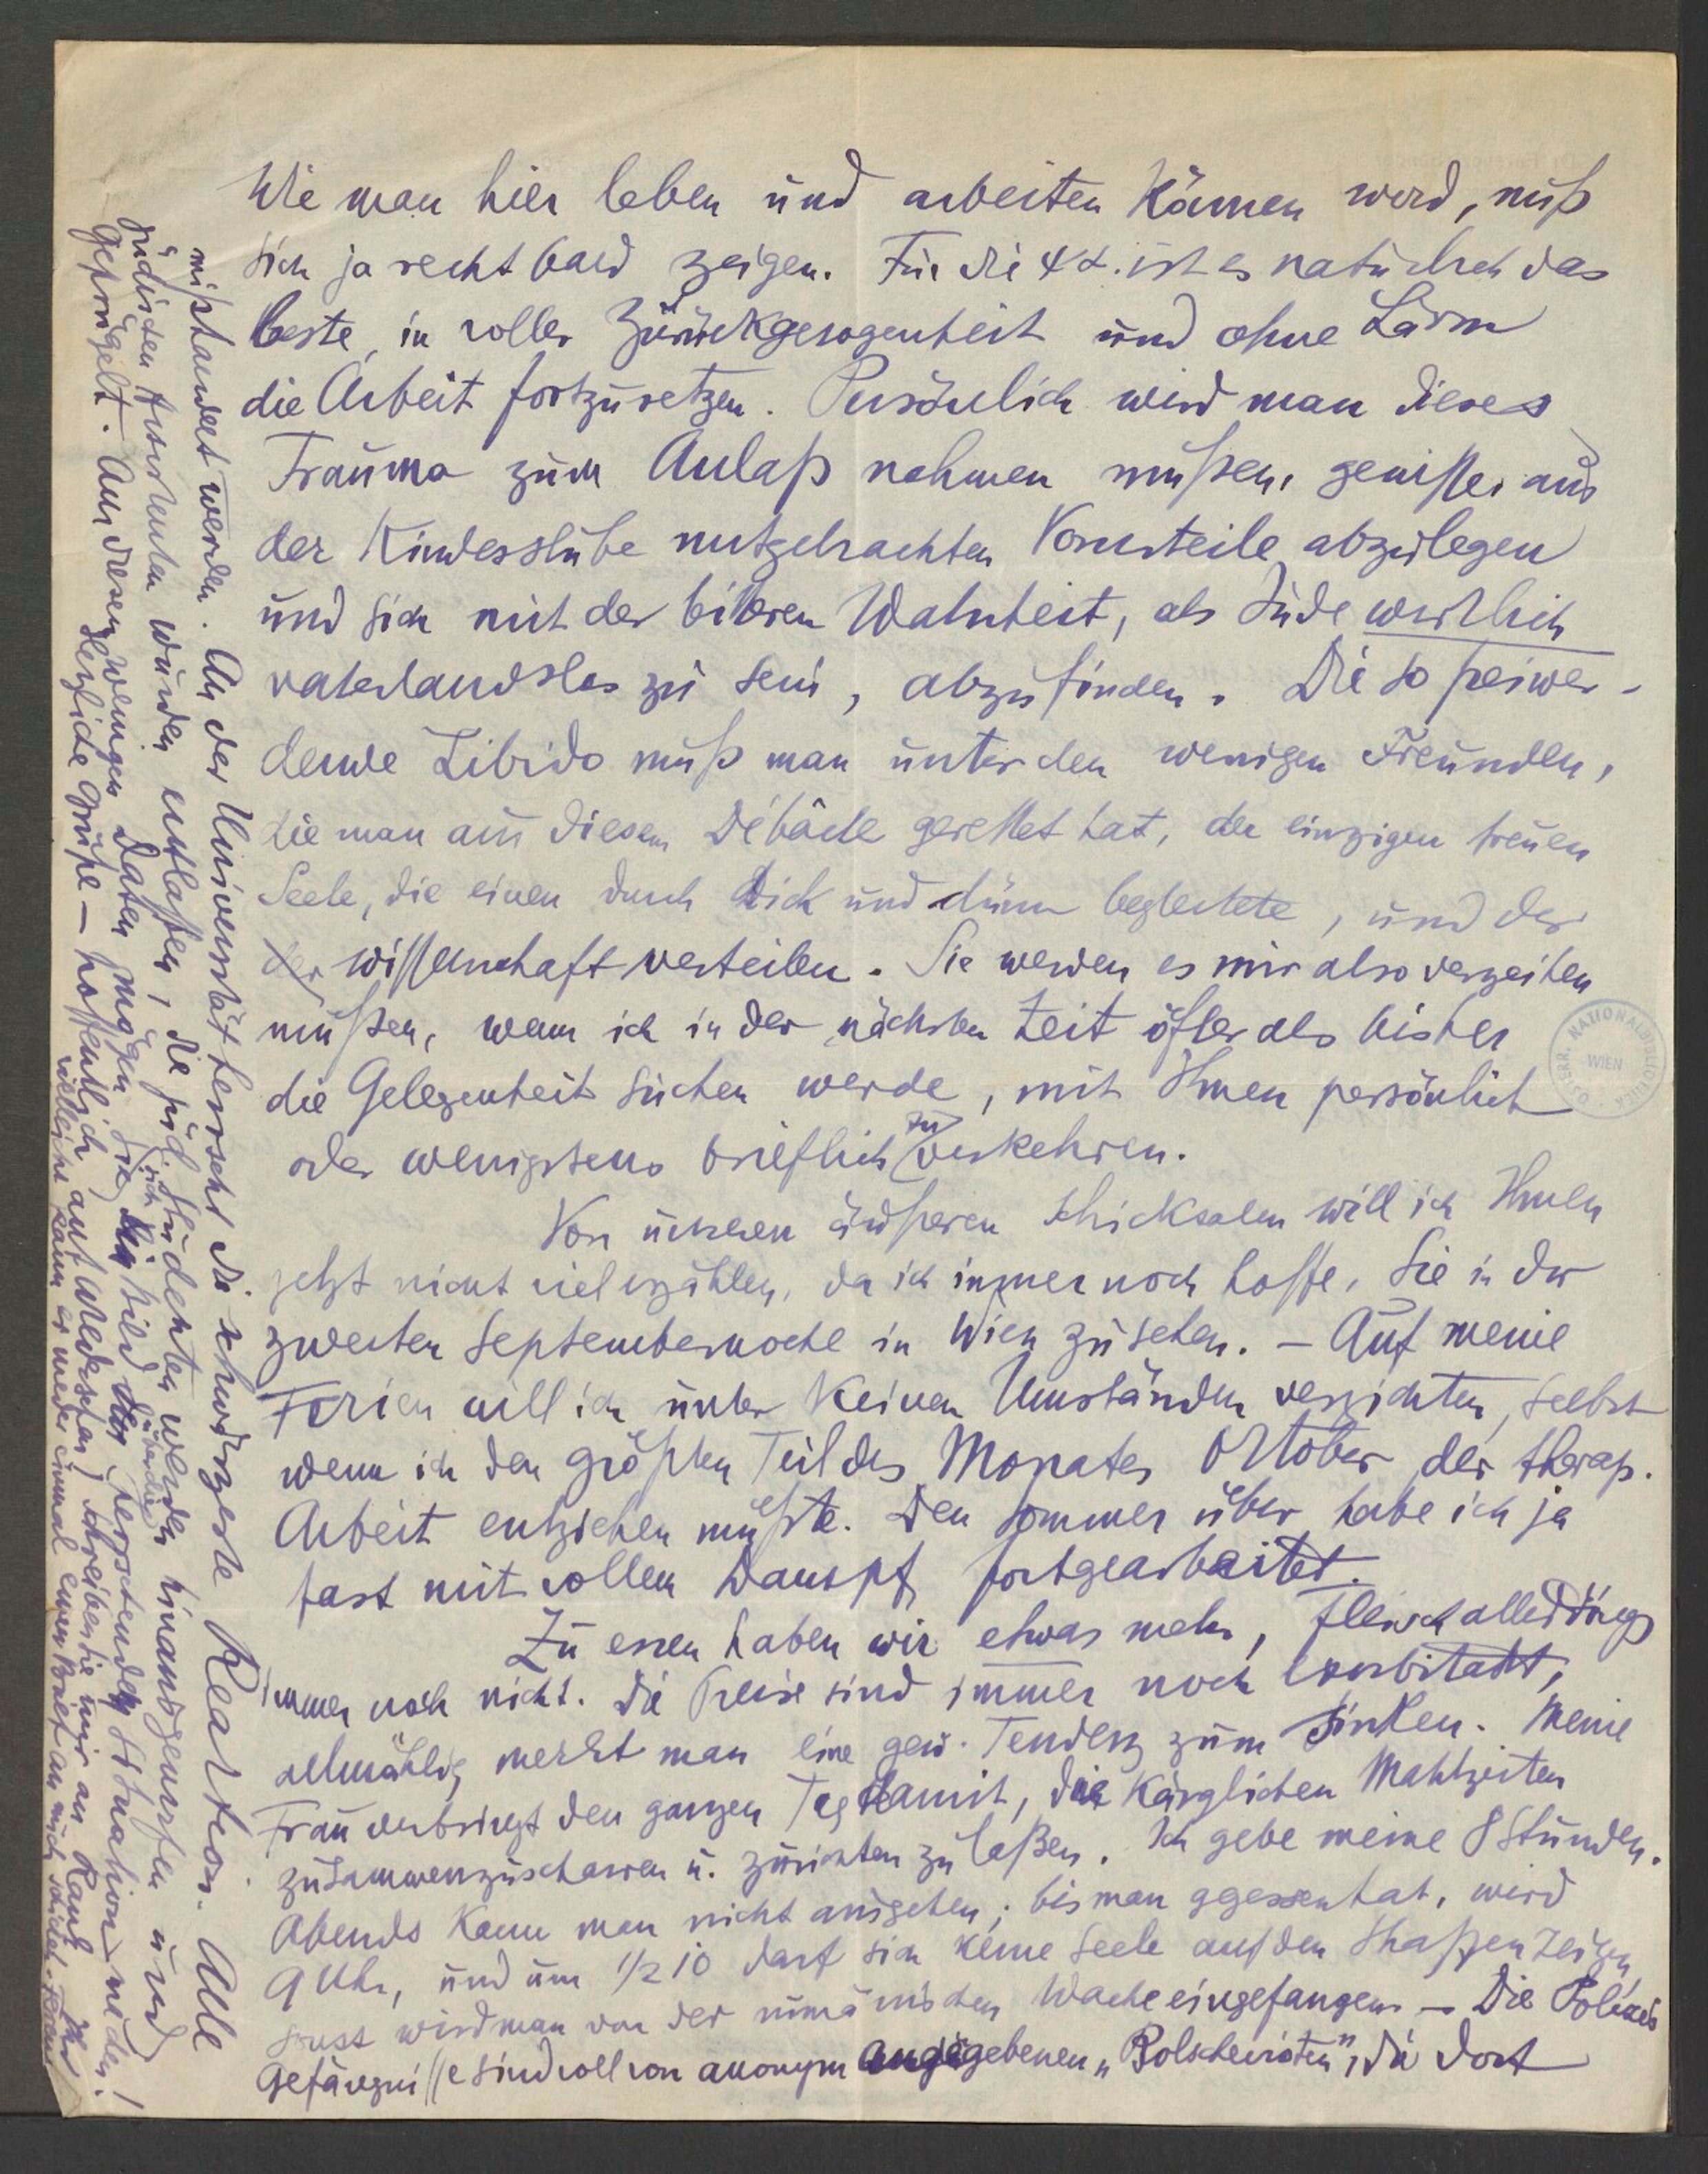 Wie man hier leben und arbeiten können wird, muß
sich ja recht bald zeigen. Für die ψα. ist es natürlich das
beste, in voller Zurückgezogenheit und ohne Lärm
die Arbeit fortzusetzen. Persönlich wird man dieses
Trauma zum Anlaß nehmen müßen, gewisse, aus
der Kinderstube mitgebrachten Vorurteile abzulegen
und sich mit der bitteren Wahrheit, als Jude wirklich
vaterlandslos zu sein, abzufinden. Die so freiwer-
dende Libido muß man unter den wenigen Freunden,
die man aus diesem Débâcle gerettet hat, der einzigen treuen
Seele, die einen durch dick und dünn begleitete, und der
der Wissenschaft verteilen. Sie werden es mir also verzeihen
müßen, wenn ich in der nächsten Zeit öfter als bisher
die Gelegenheit suchen werde, mit Ihnen persönlich
oder wenigstens brieflich zu verkehren.
Von unseren äußeren Schicksalen will ich Ihnen
jetzt nicht viel erzählen, da ich immer noch hoffe, Sie in der
zweiten Septemberwoche in Wien zu sehen. – Auf meine
Ferien will ich unter keinen Umständen verzichten, selbst
wenn ich den größten Teil des Monates Oktober der therap.
Arbeit entziehen müßte. Den Sommer über habe ich ja
fast mit vollem Dampf fortgearbeitet.
Zu essen haben wir etwas mehr, Fleisch allerdings
immer noch nicht. Die Preise sind immer noch exorbitant,
allmählig merkt man eine gew. Tendenz zum Sinken. Meine
Frau verbringt den ganzen Tag damit, die kärglichen Mahlzeiten
zusammenzuscharren u. zurichten zu laßen. Ich gebe meine 8 Stunden.
Abends kann man nicht ausgehen; bis man gegessen hat, wird
9 Uhr, und um ½ 10 darf sich keine Seele auf den Straßen zeigen,
sonst wird man von der rumänischen Wache eingefangen. – Die Polizei
Gefängnisse sind voll von anonym angegebenen „Bolschewisten", die dort
mißhandelt werden. An der Universität herrscht die schwärzeste Reaktion. Alle
jüdischen Assistenten wurden entlaßen, die jüd. Studenten werden hinausgeworfen und
geprügelt. – Aus diesen wenigen Daten mögen Sie sich ein Bild über die herrschende Situation bilden!
Herzliche Grüße – hoffentlich auf Wiedersehen! Schreiben Sie mir an Rank
vielleicht kann er wieder einmal einen Brief an mich schicken. Ihr
Ferenczi
ÖSTERR. NATIONALBIBLIOTHEK
WIEN